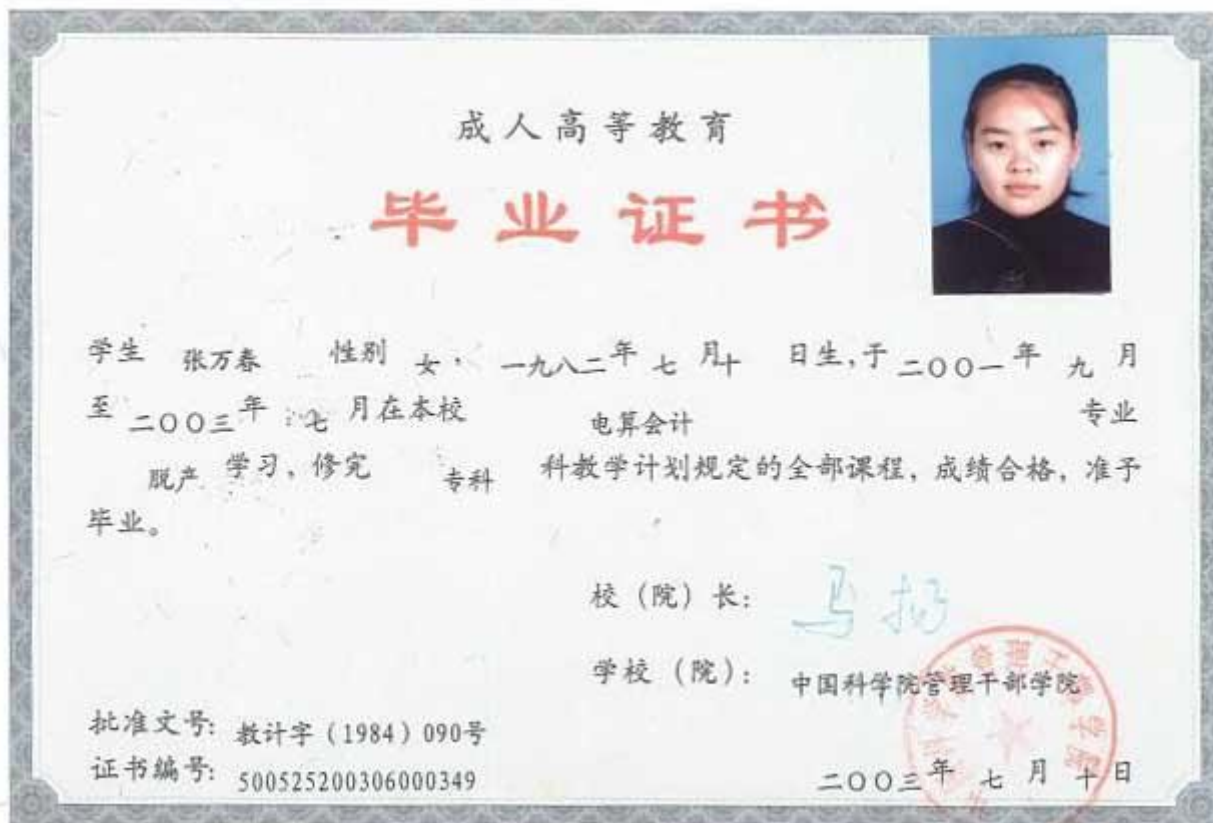 成人高等教育
毕业证书
学生 张万春 性别 女， 一九八二年 七 月十 日生,于 二〇〇一 年 九 月
至 二〇〇三 年 七 月在本校 电算会计 专业
脱产 学习，修完 专科 科教学计划规定的全部课程，成绩合格，准予
毕业。
校（院）长： 马扬
学校（院）： 中国科学院管理干部学院
批准文号: 教计字（1984）090号
证书编号: 500525200306000349
二〇〇三 年 七 月 十 日